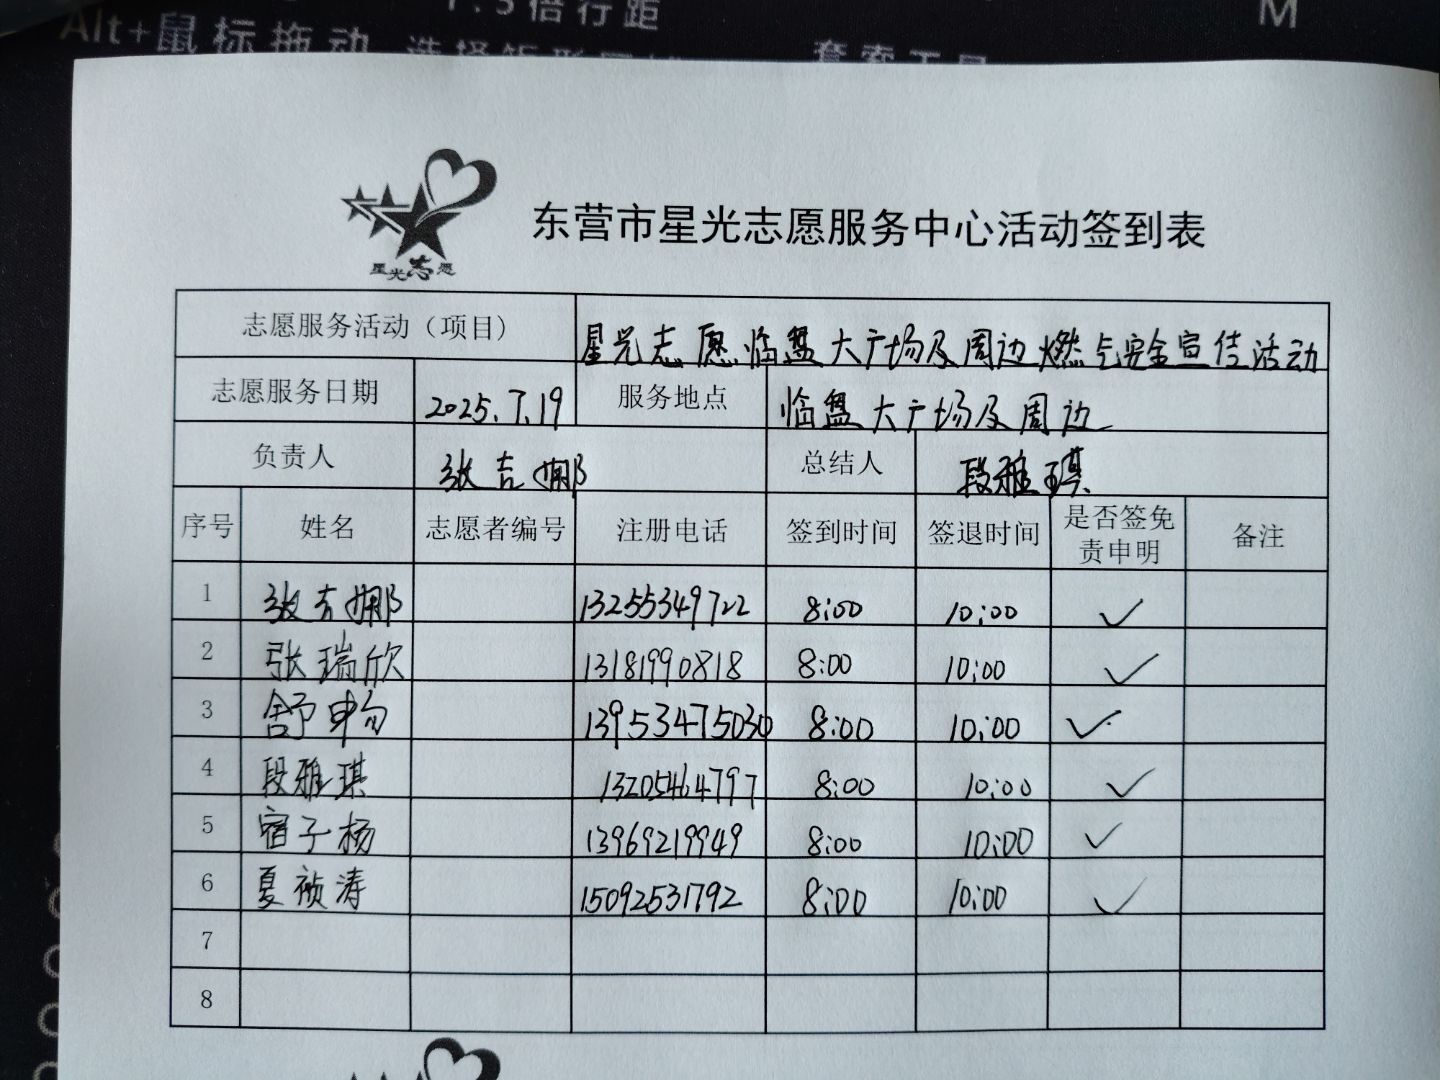 Alt+鼠标拖动
1.5倍行距
M
套索工具
星光志愿
东营市星光志愿服务中心活动签到表
志愿服务活动（项目） 星光志愿临盘大广场及周边燃气安全宣传活动
志愿服务日期 2025.7.19 服务地点 临盘大广场及周边
负责人 张吉娜 总结人 段雅琪
序号 姓名 志愿者编号 注册电话 签到时间 签退时间 是否签免责申明 备注
1 张吉娜 13255349722 8:00 10:00 ✓
2 张瑞欣 13181990818 8:00 10:00 ✓
3 舒畅 13953475030 8:00 10:00 ✓
4 段雅琪 13205464797 8:00 10:00 ✓
5 宿子杨 13969219949 8:00 10:00 ✓
6 夏祯涛 15092531792 8:00 10:00 ✓
7
8